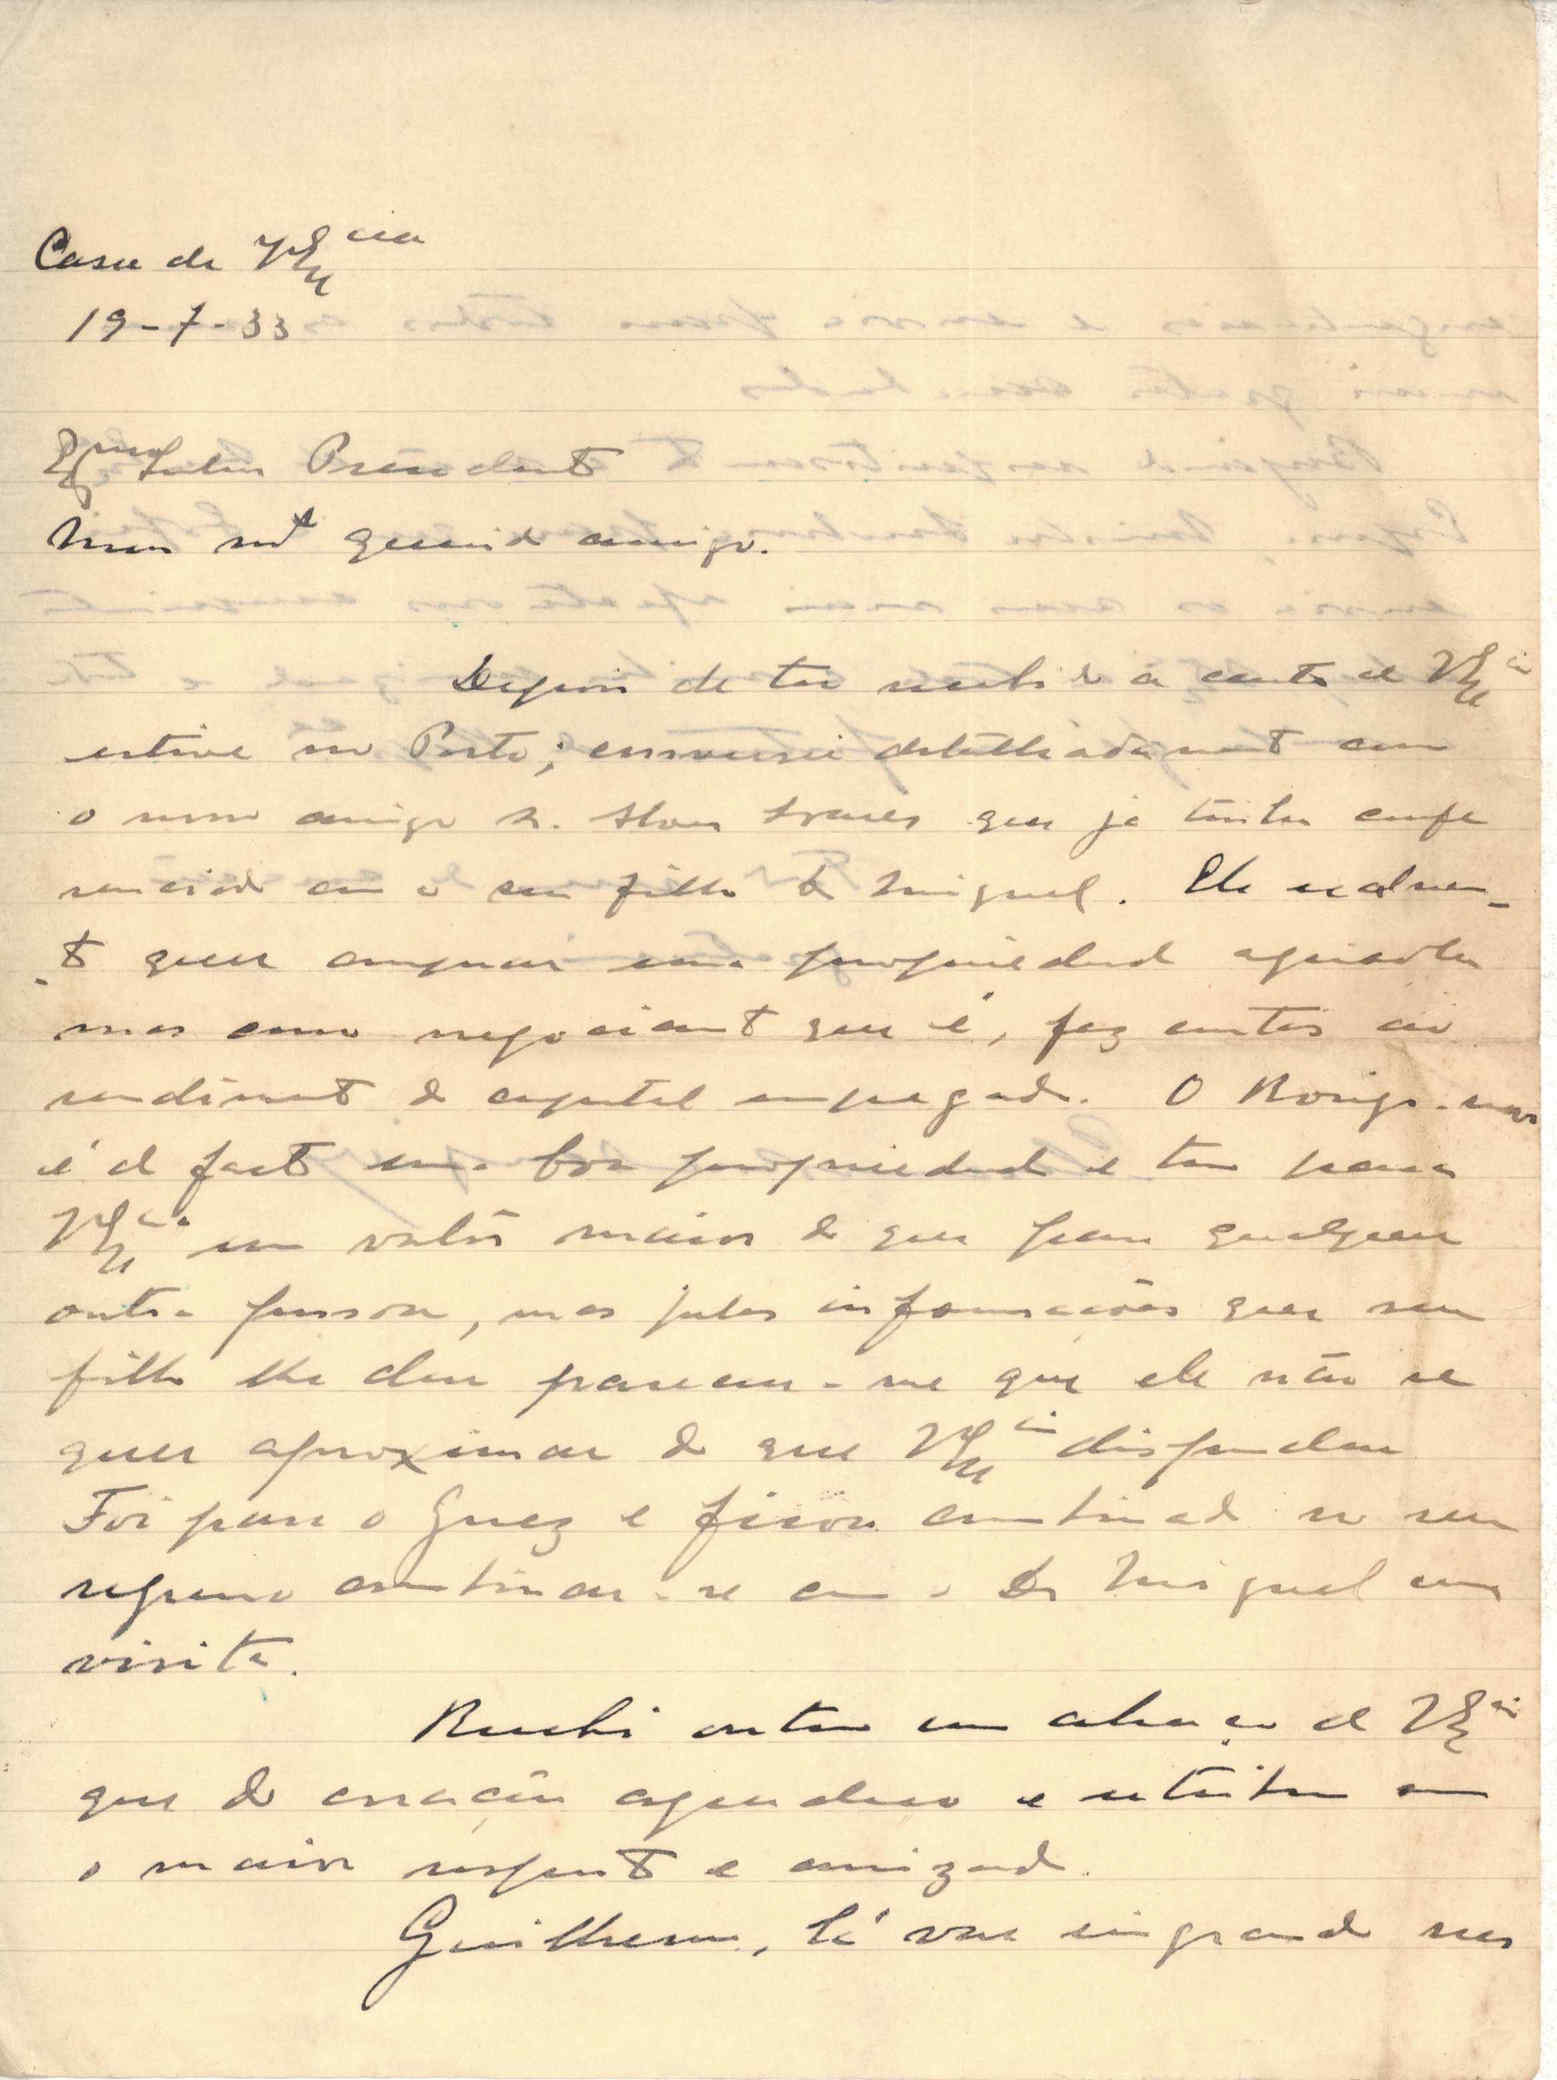 Casa de V Ex cia
19-7-33
Exmo Senhor Presidente
Meu mto querido amigo.
Depois de ter recebido a carta de V Ex cia
estive no Porto; conversei detalhadamente com
o nosso amigo Sr. Alves que já tinha confe
renciado com o seu filho Dr Miguel. Ele realmen-
-te quer comprar uma propriedade agricola
mas como negociante que é, faz contas ao
rendimento do capital empregado. O
é de facto uma boa propriedade e tem para
V Ex cia um valôr maior do que para qualquer
outra pessoa, mas pelas informações que seu
filho lhe deu pareceu-me que ele não se
quer aproximar do que V Ex cia dispendeu
Foi para o Gerez e ficou combinado no seu
regresso combinar-se com o Dr Miguel uma
visita.
Recebi ontem um abraço de V Ex cia
que do coração agradeço e retribuo com
o maior respeito e amizade.
Guilherme, lá vae engrandecer